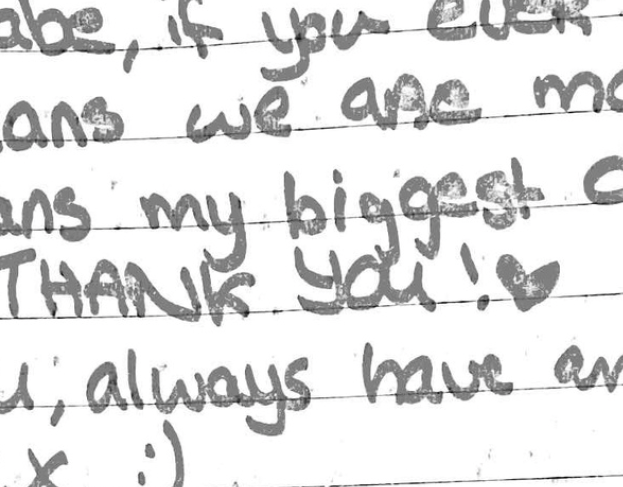 abe, if you ever
ans we are mo
ans my biggest
THANK YOU! ♥
u, always have an
x :)